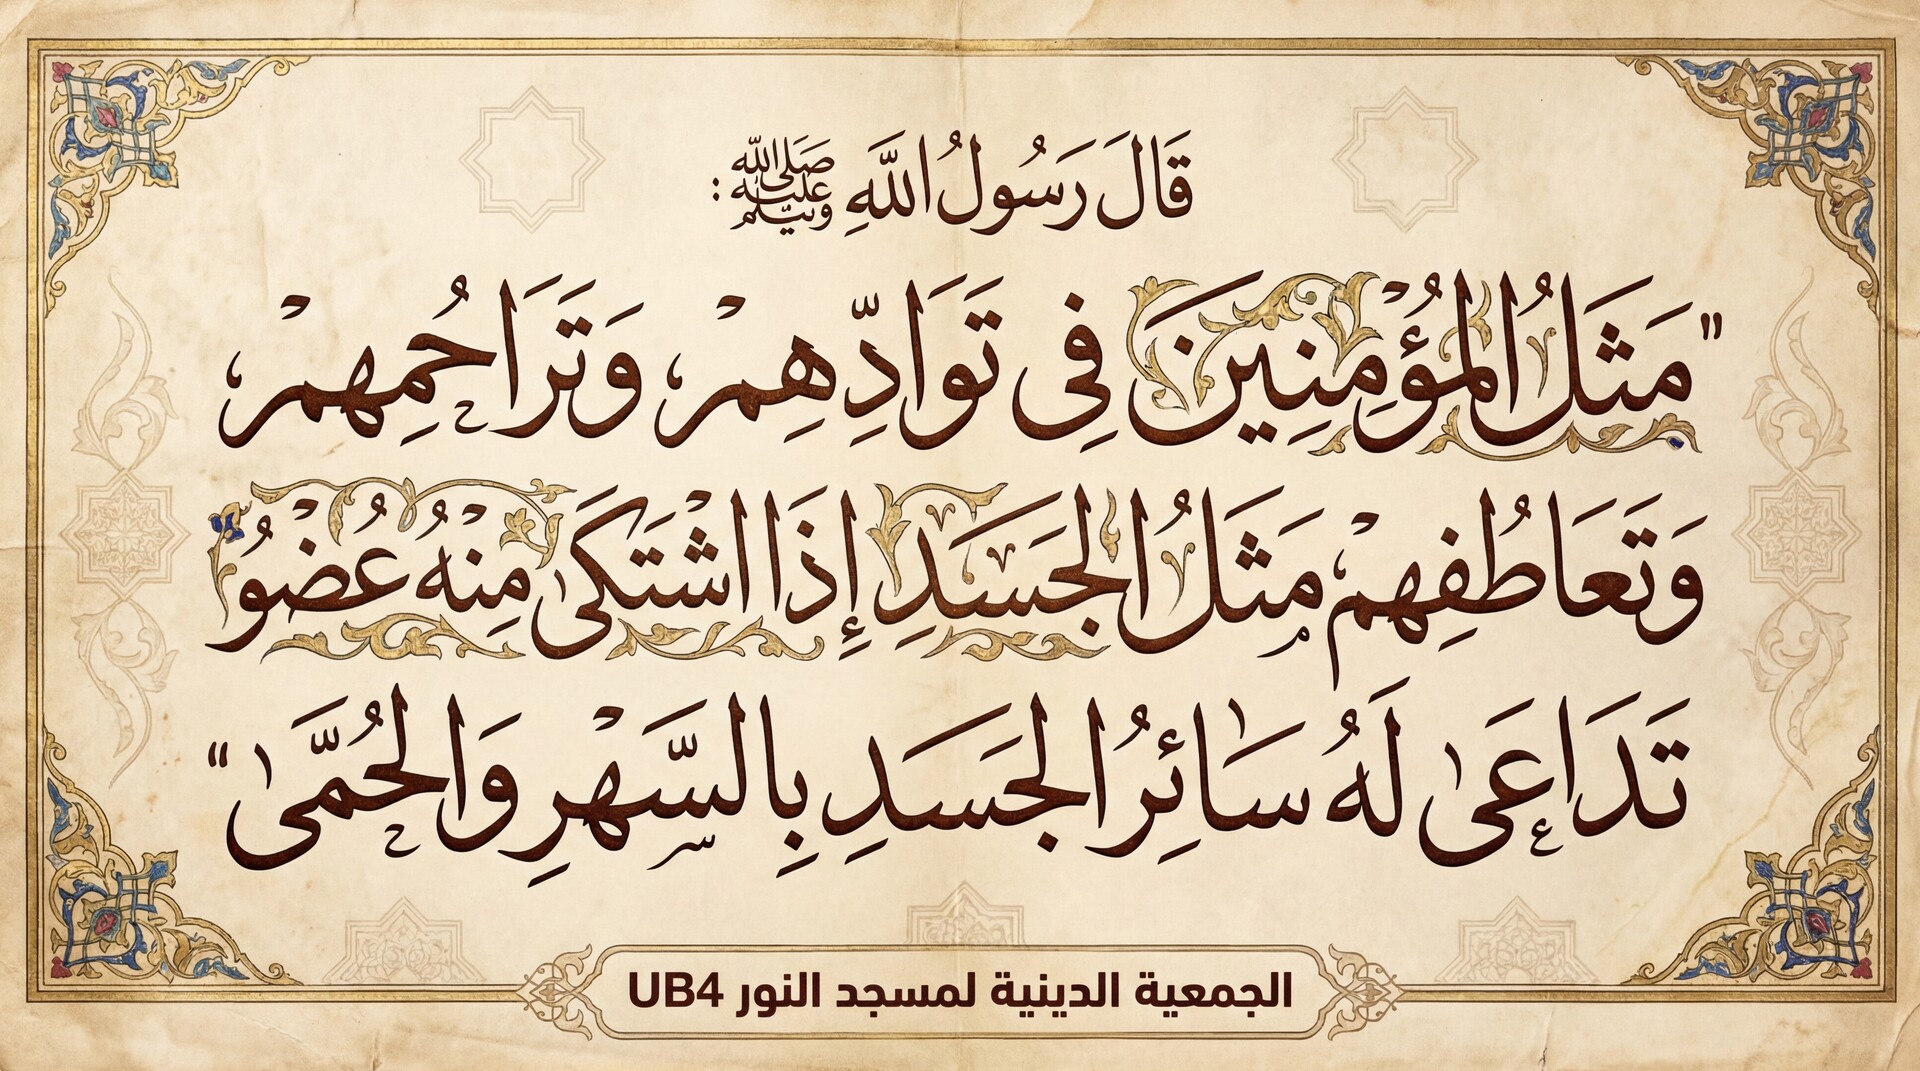 قَالَ رَسُولُ اللَّهِ ﷺ :
"مَثَلُ المُؤْمِنِينَ فِي تَوَادِّهِمْ، وَتَرَاحُمِهِمْ،
وَتَعَاطُفِهِمْ مَثَلُ الجَسَدِ إِذَا اشْتَكَىٰ مِنْهُ عُضْوُ
تَدَاعَىٰ لَهُ سَائِرُ الجَسَدِ بِالسَّهْرِ وَالحُمَّىٰ"
الجمعية الدينية لمسجد النور UB4